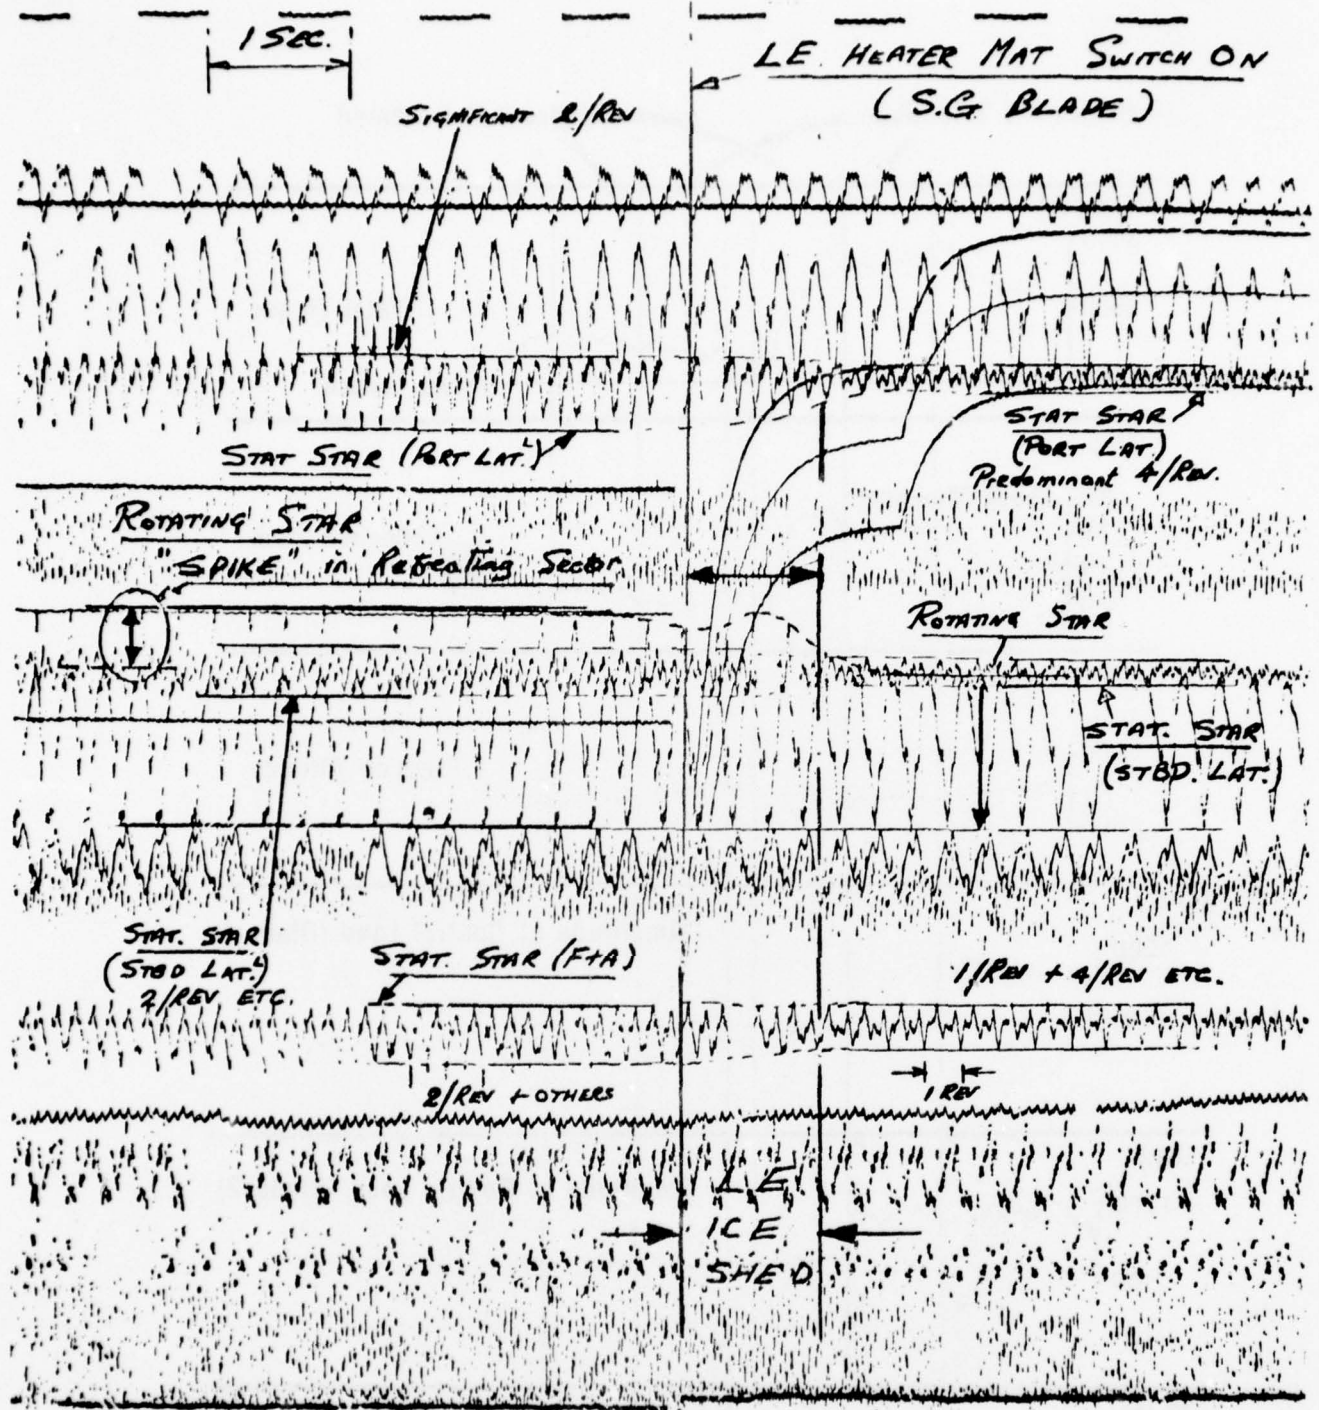 1 SEC.
LE. HEATER MAT SWITCH ON
(S.G BLADE)
SIGNIFICANT 2/REV
STAT STAR (PORT LAT.L)
STAT STAR
(PORT LAT.)
Predominant 4/REV.
ROTATING STAR
"SPIKE" in Retreating Sector
ROTATING STAR
STAT. STAR
(STBD. LAT.)
STAT. STAR
(STBD LAT.L)
2/REV ETC.
STAT. STAR (F+A)
1/REV + 4/REV ETC.
2/REV + OTHERS
1 REV
LE
ICE
SHED